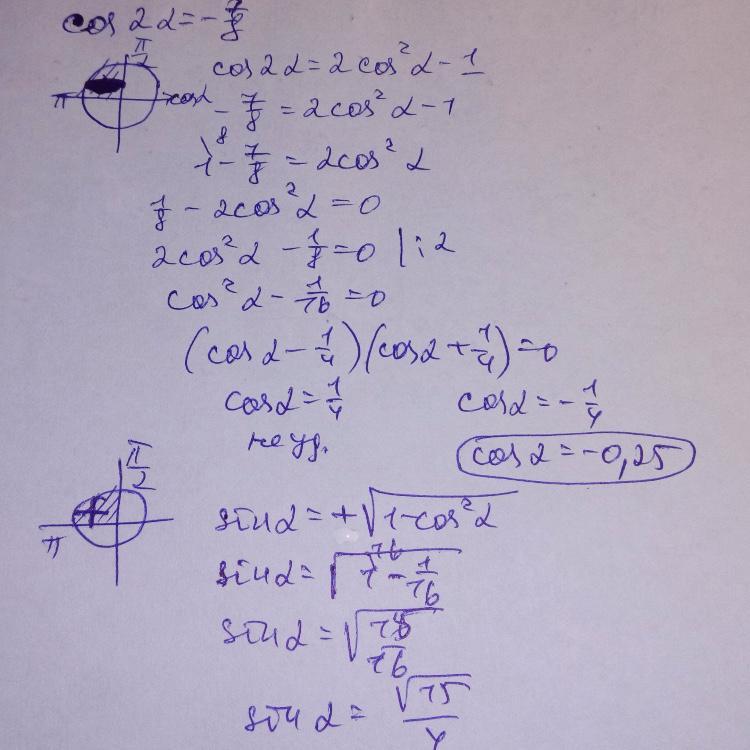 cos 2α = -7/8
π/2
cos 2α = 2cos²α - 1
π cosα
-7/8 = 2cos²α - 1
1\8 - 7/8 = 2cos²α
1/8 - 2cos²α = 0
2cos²α - 1/8 = 0 |:2
cos²α - 1/16 = 0
(cosα - 1/4)(cosα + 1/4) = 0
cosα = 1/4 cosα = -1/4
не уд. cosα = -0,25
π/2
π +
sinα = +√(1-cos²α)
sinα = √(1\16 - 1/16)
sinα = √(15/16)
sinα = √15/4